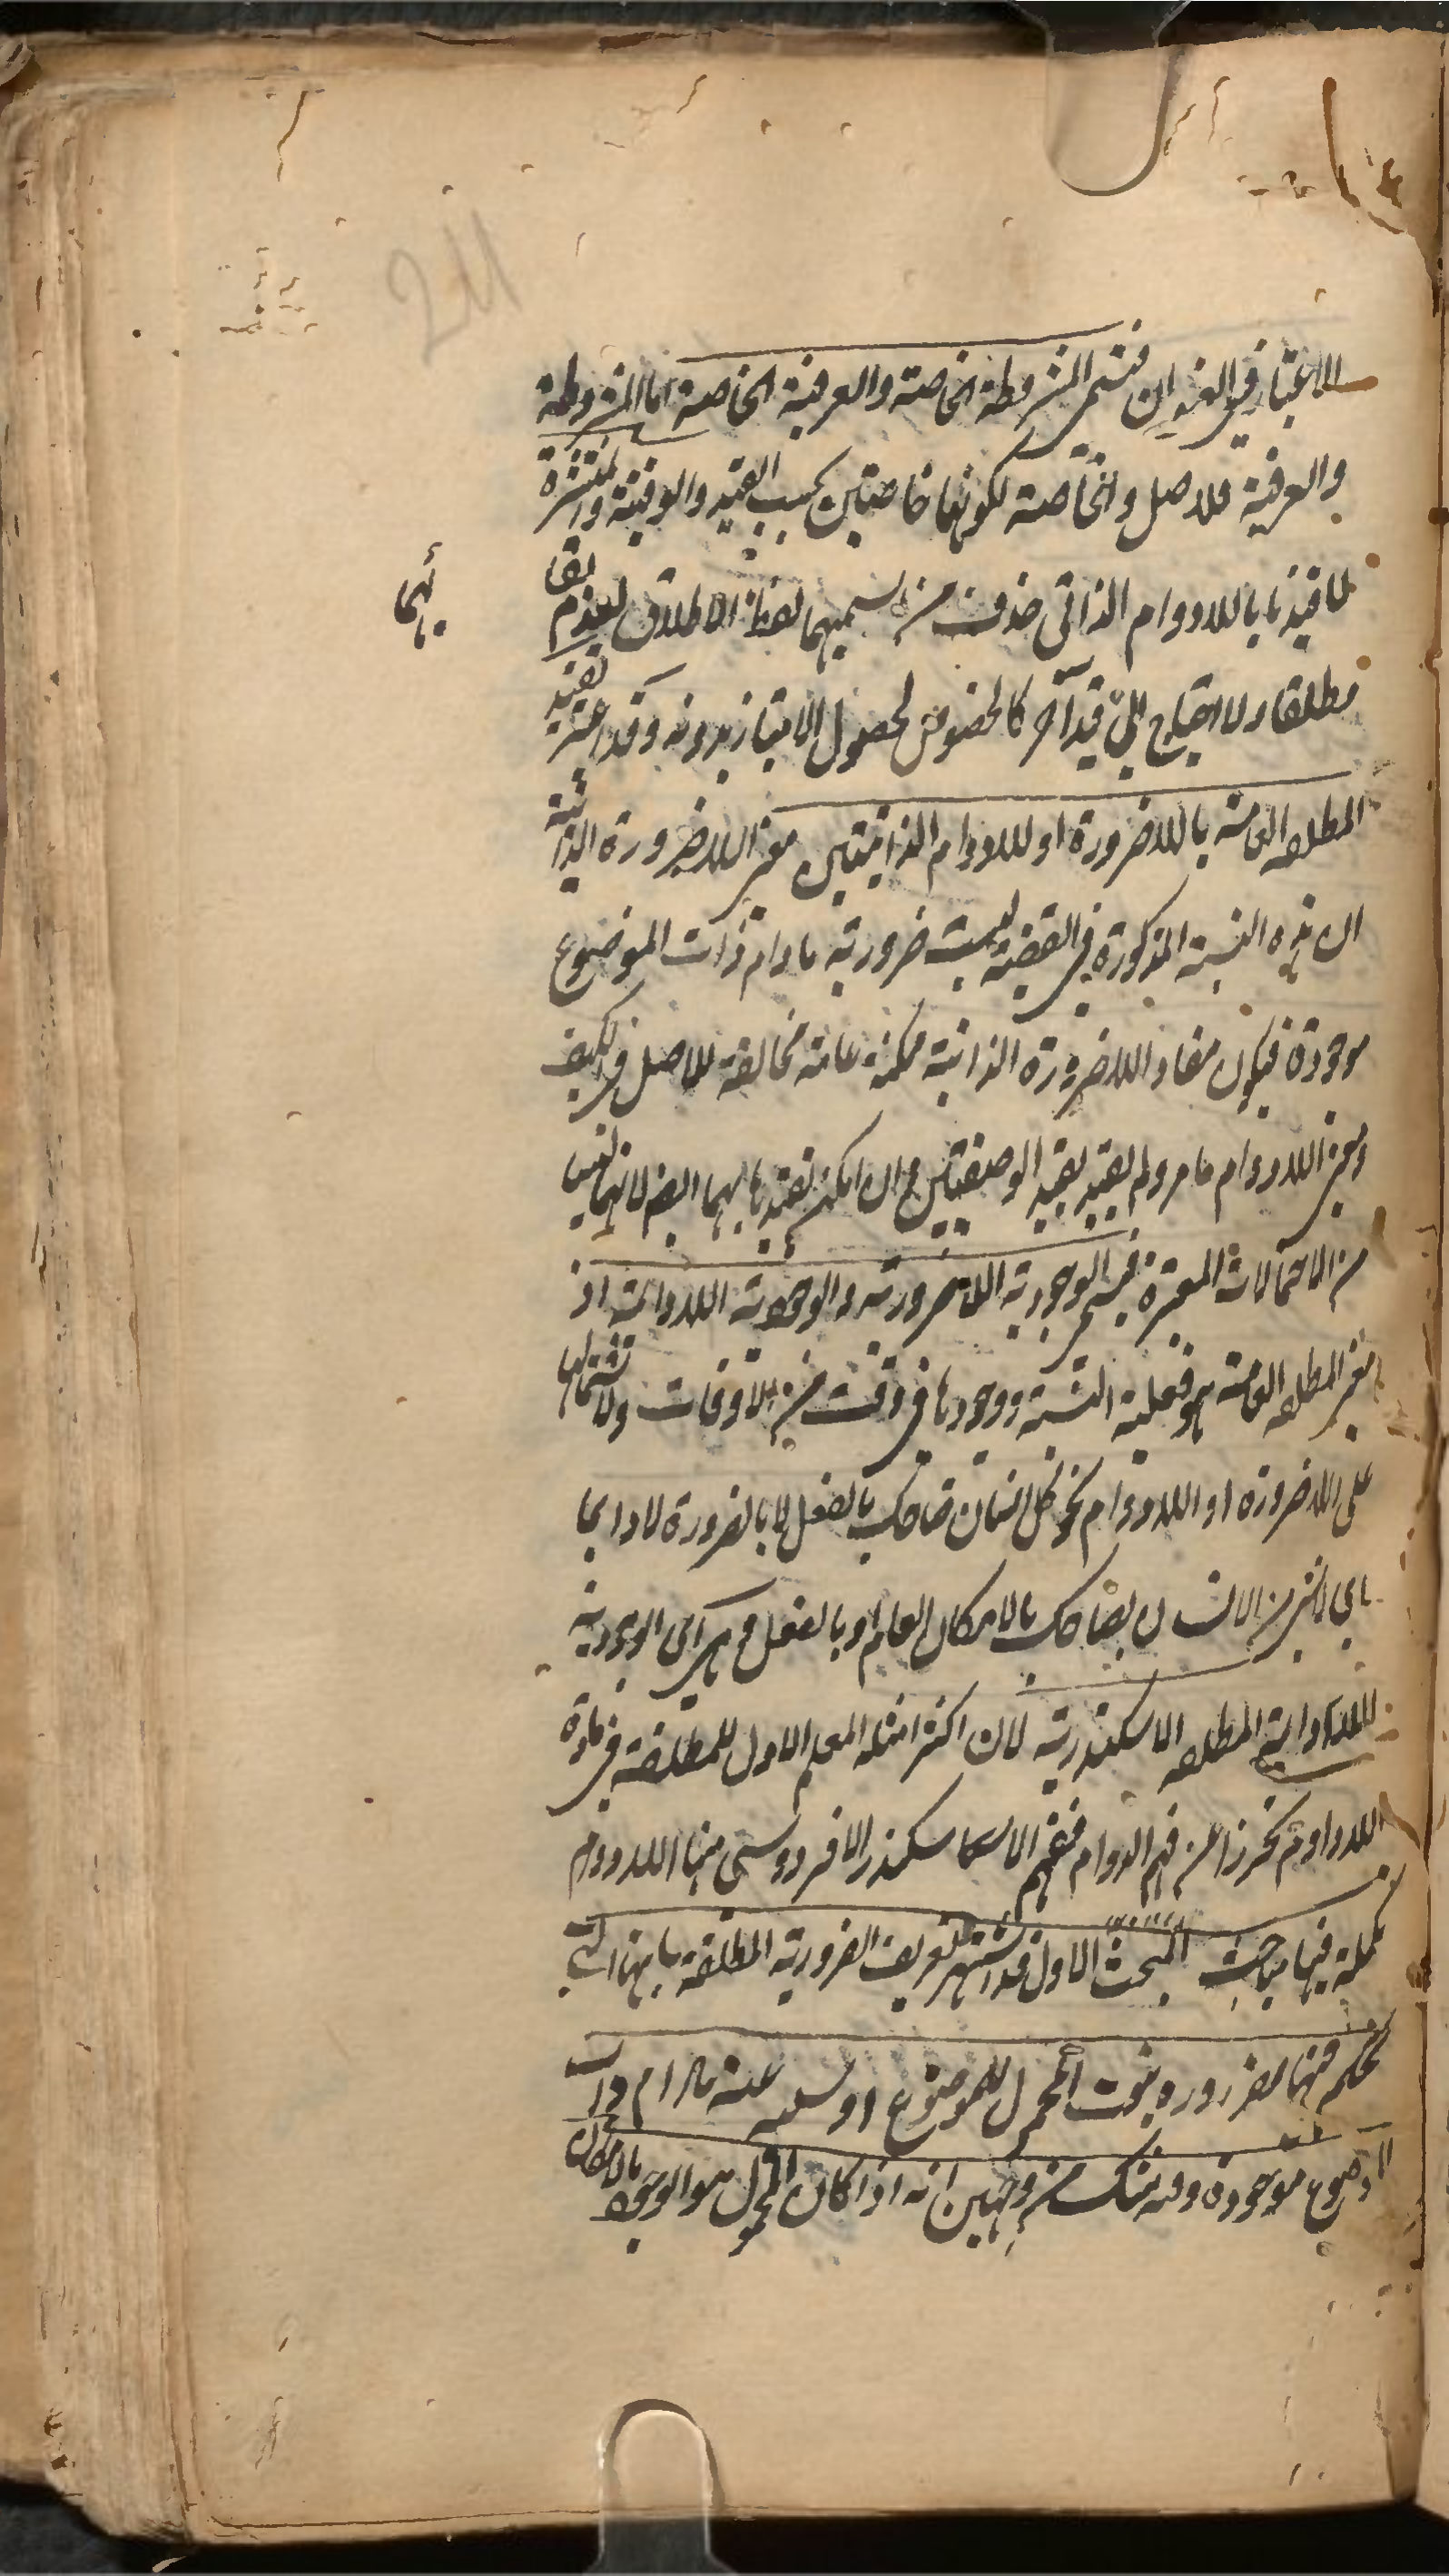 211
الاعتبار في العنوان فتسمى المشروطة الخاصة والعرفية الخاصة اما المشروطة
والعرفية فللاصل والخاصة لكونهما خاصتين بحسب القيد والوقتية والمنتشرة
لما قيدتا باللادوام الذاتي حذف من اسميهما لفظ الاطلاق لعدم بقائهما
مطلقا ولا احتياج الى قيد آخر كالخصوص لحصول الامتياز بدونه وقد اعتبر تقييد
المطلقه العامة باللاضرورة او اللادوام الذاتيتين معنى اللاضرورة الذاتية
ان هذه النسبة المذكورة في القضية ليست ضرورية مادام ذات الموضوع
موجودة فيكون مفاد اللاضرورة الذاتية ممكنة عامة مخالفة للاصل في الكيف
ومعنى اللادوام ما مر ولم يقيد بقيد الوصفيتين مع ان امكن تقييدها بهما ايضا لانهما ليس
من الاحتمالات المعتبرة فتسمى الوجودية اللاضرورية والوجودية اللادائمة اذ
معنى المطلقه العامة هو فعلية النسبة ووجودها في وقت من الاوقات ولاشتمالها
على اللاضرورة او اللادوام نحو كل انسان ضاحك بالفعل لا بالضرورة لا دائما
اي لا شئ من الانسان بضاحك بالامكان العام او بالفعل وهي اى الوجودية
اللادائمة المطلقه الاسكندرية لان اكثر امثلة المعلم الاول للمطلقة في مادة
اللادوام تحرزا عن فهم الدوام ففهم الاسكندر الافردوسى منها اللادوام
تكملة فيها مباحث المبحث الاول قد اشتهر تعريف الضرورية المطلقة بانها التي
يحكم فيها بضرورة ثبوت المحمول للموضوع او سلبه عنه مادام ذات
الموضوع موجودة وفيه شك من وجهين انه اذا كان المحمول هو الوجود بالامكان
ئهما